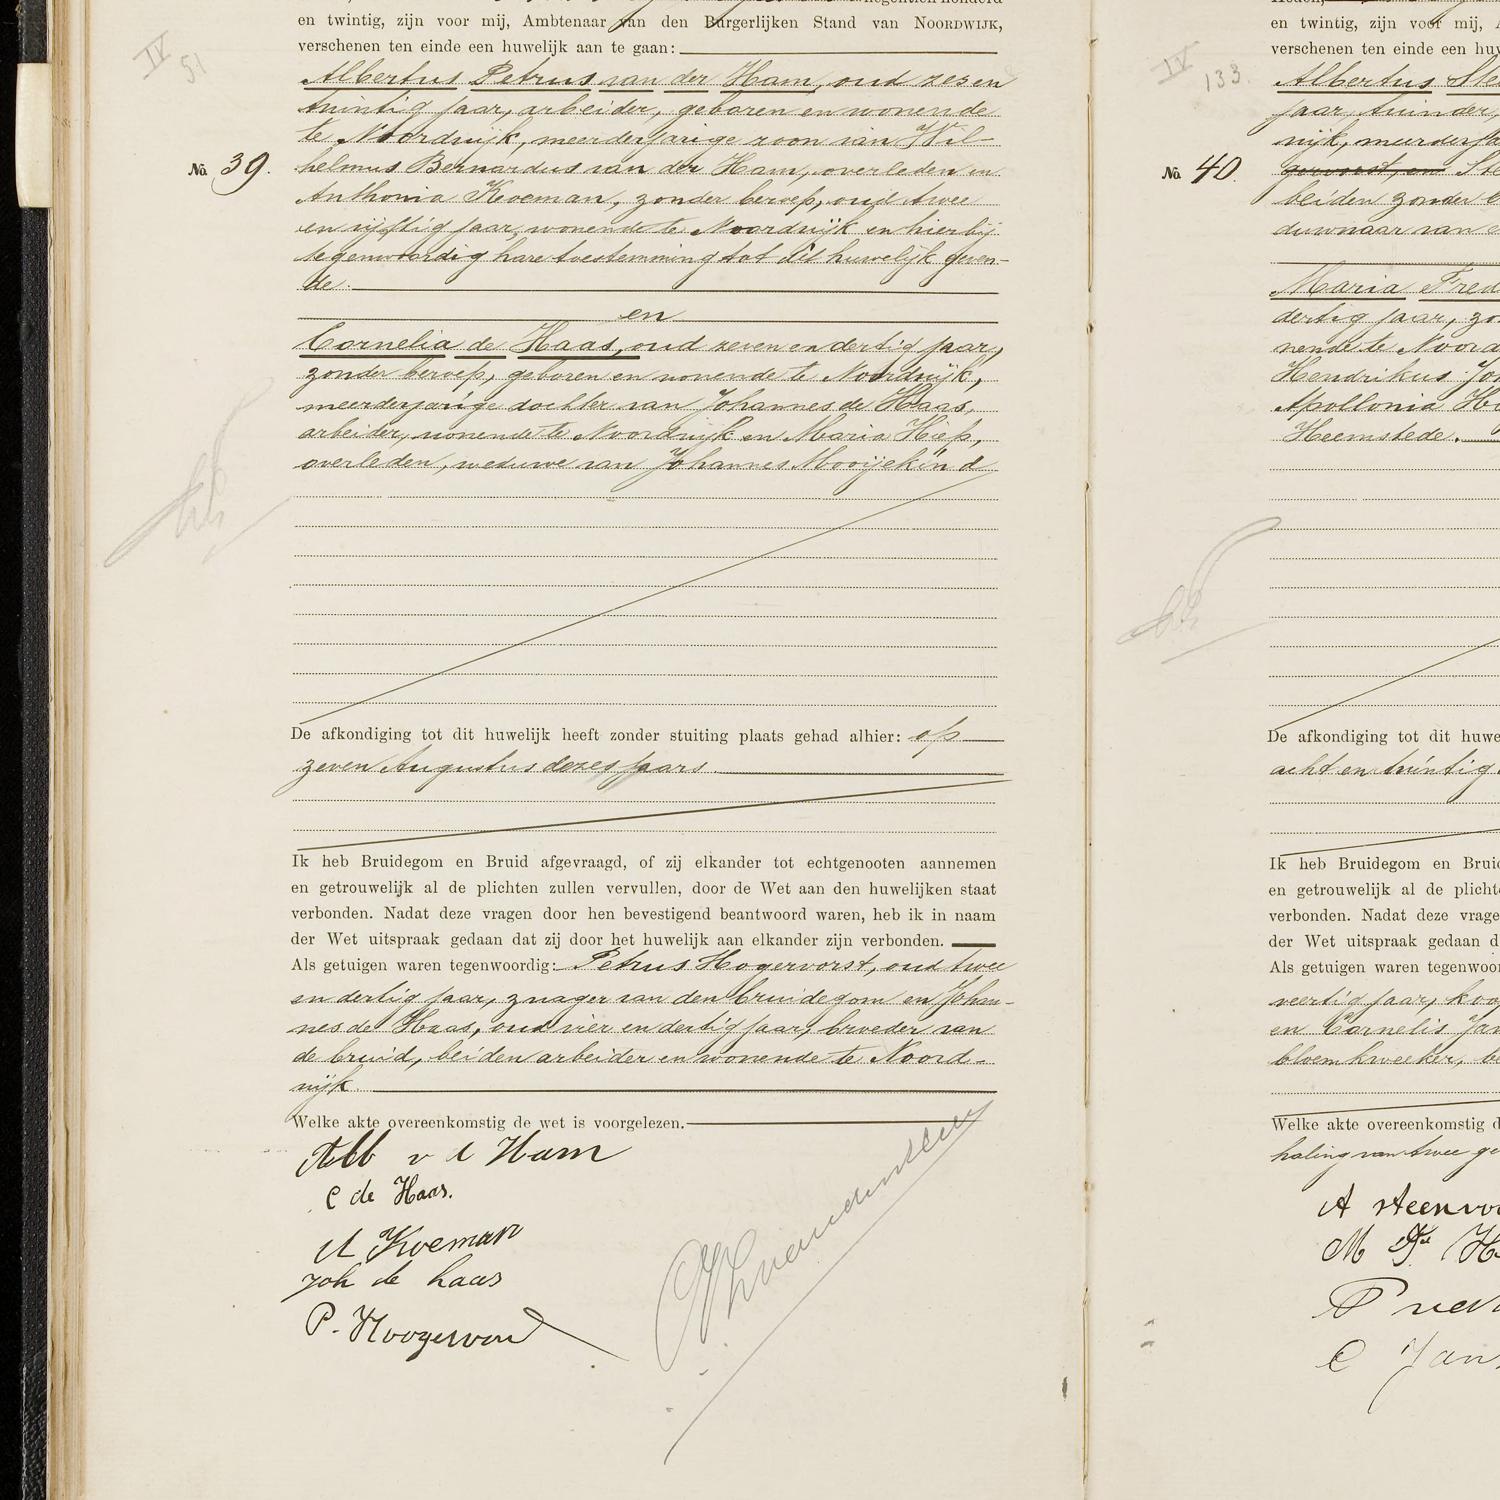 en twintig, zijn voor mij, Ambtenaar van den Burgerlijken Stand van NOORDWIJK,
verschenen ten einde een huwelijk aan te gaan:
IV
51
No. 39.
Albertus Petrus van der Ham, oud zes en
twintig jaar, arbeider, geboren en wonende
te Noordwijk, meerderjarige zoon van Wil-
helmus Bernardus van der Ham, overleden en
Anthonia Koeman, zonder beroep, oud twee
en vijftig jaar, wonende te Noordwijk en hierbij
tegenwoordig hare toestemming tot dit huwelijk geven-
de.
en
Cornelia de Haas, oud zeven en dertig jaar,
zonder beroep, geboren en wonende te Noordwijk,
meerderjarige dochter van Johannes de Haas,
arbeider, wonende te Noordwijk en Maria Hiep,
overleden, weduwe van Johannes Mooijekind
De afkondiging tot dit huwelijk heeft zonder stuiting plaats gehad alhier: op
zeven Augustus dezes jaars
Ik heb Bruidegom en Bruid afgevraagd, of zij elkander tot echtgenooten aannemen
en getrouwelijk al de plichten zullen vervullen, door de Wet aan den huwelijken staat
verbonden. Nadat deze vragen door hen bevestigend beantwoord waren, heb ik in naam
der Wet uitspraak gedaan dat zij door het huwelijk aan elkander zijn verbonden.
Als getuigen waren tegenwoordig: Petrus Hogervorst, oud twee
en dertig jaar, zwager van den bruidegom en Johan-
nes de Haas, oud vier en dertig jaar, broeder van
de bruid, beiden arbeider en wonende te Noord-
wijk
Welke akte overeenkomstig de wet is voorgelezen.
Alb v d Ham
C de Haas.
A Koeman
Joh de haas
P. Hoogervorst
en twintig, zijn voor mij,
verschenen ten einde een huw
IV
133.
No. 40.
Albertus Ste
jaar, tuinder,
wijk, meerderja
gervorst, en Ste
beiden zonder b
duwnaar van
Maria Fred
dertig jaar, zon
nende te Noord
Hendrikus Joh
Apollonia Ho
Heemstede.
De afkondiging tot dit huwe
acht en twintig
Ik heb Bruidegom en Bruid
en getrouwelijk al de plicht
verbonden. Nadat deze vrage
der Wet uitspraak gedaan d
Als getuigen waren tegenwoor
veertig jaar, koo
en Cornelis Jan
bloemkweeker, be
Welke akte overeenkomstig d
haling van twee ge
A steenvo
C Jan